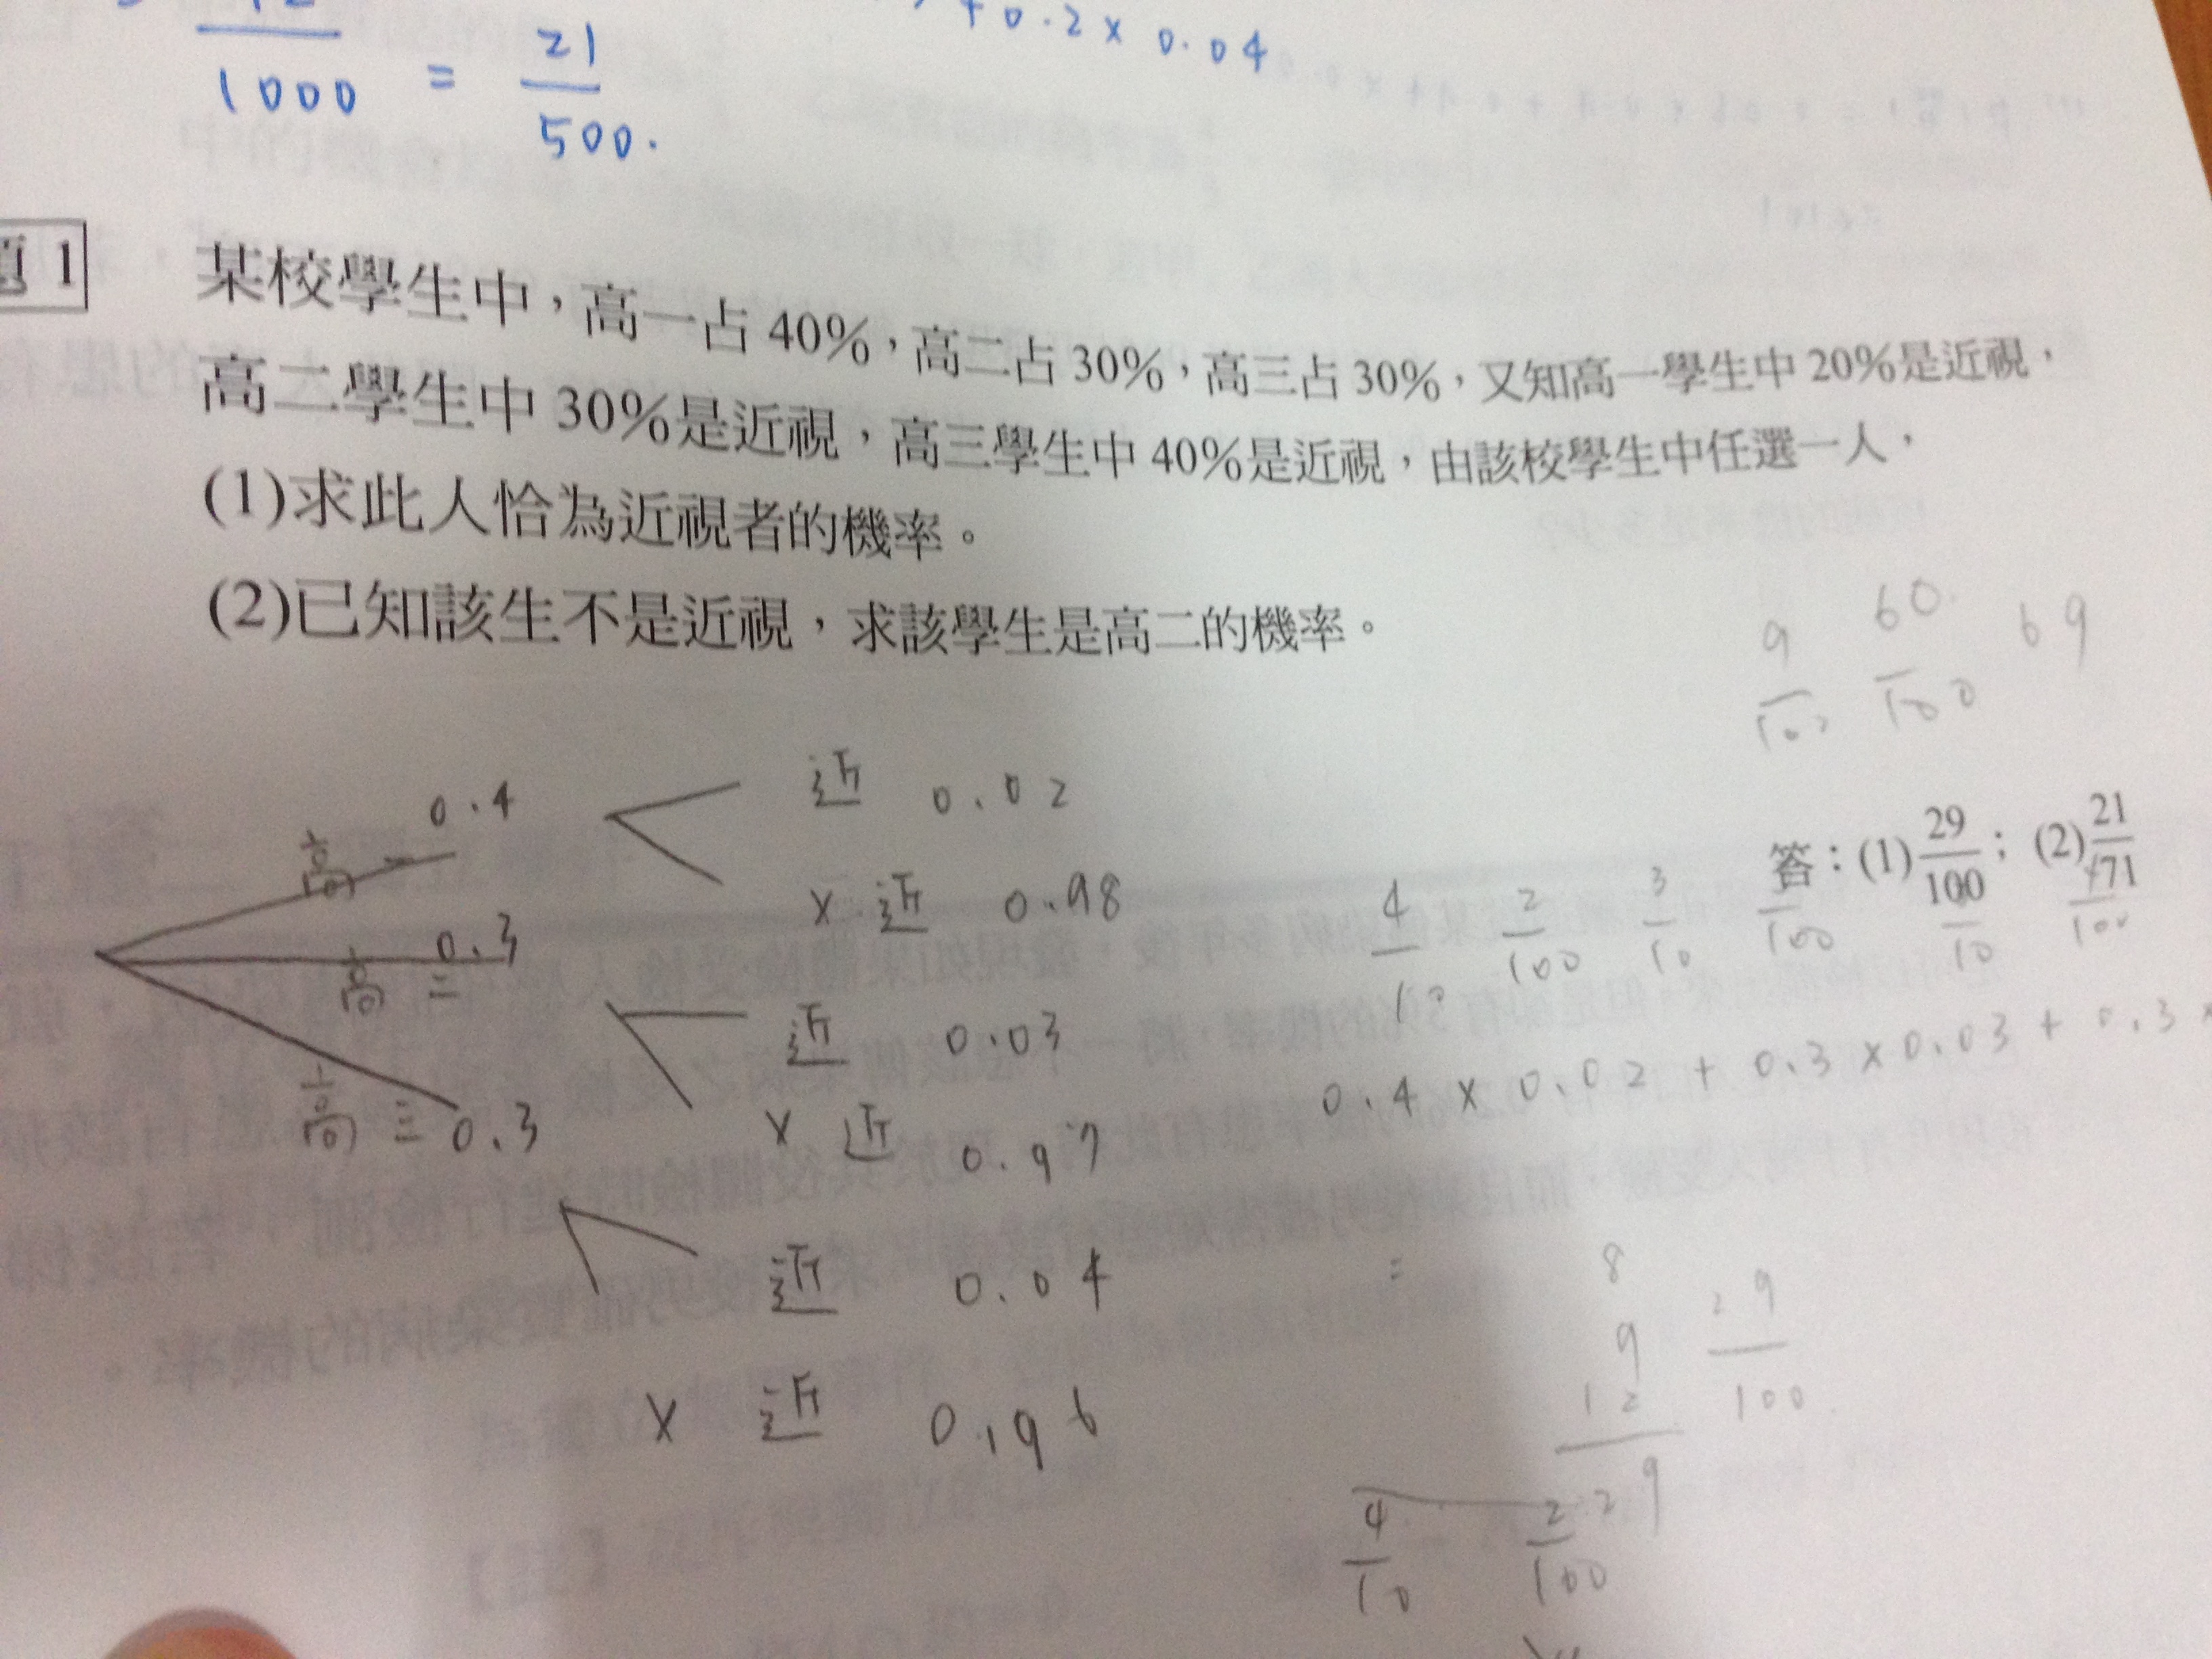 1000 = 21
500.
+ 0.2 × 0.04
1
某校學生中，高一占 40%，高二占 30%，高三占 30%，又知高一學生中 20%是近視，
高二學生中 30%是近視，高三學生中 40%是近視，由該校學生中任選一人，
(1)求此人恰為近視者的機率。
(2)已知該生不是近視，求該學生是高二的機率。
9 60 69
100
答：(1) 29/100；(2) 21/71
高一 0.4
近 0.02
× 近 0.98
高二 0.3
近 0.03
× 近 0.97
高三 0.3
近 0.04
× 近 0.96
4 2 3
10 100 10 100 10 100
0.4 × 0.02 + 0.3 × 0.03 + 0.3 ×
=
8
9
12
29
29
100
4 2
10 100